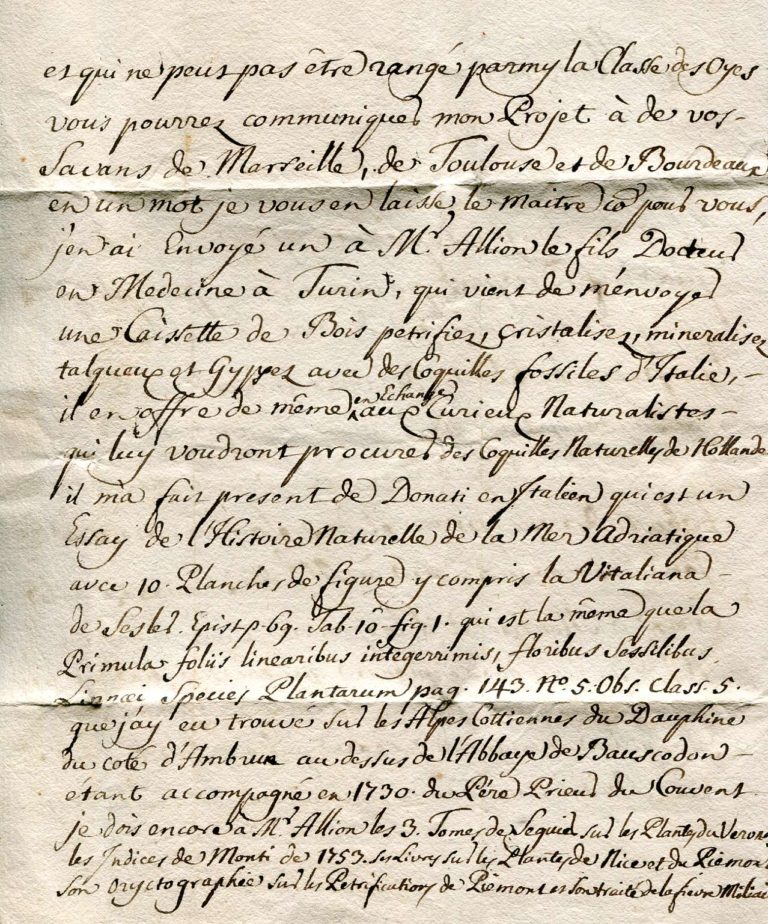 et qui ne peut pas être rangé parmy la Classe des Oyes
vous pourrez communiquer mon Projet à de vos-
Savans de Marseille, de Toulouse et de Bourdeaux
en un mot je vous en laisse le maitre co͞ pour vous,
j'en ai Envoyé un à Mr. Allion le fils Docteur
en Medecine à Turin, qui vient de m'envoyer
une Caissette de Bois petrifiez, Cristalisez, mineralisez
talqueux et Gypsez avec des Coquilles fossiles d'Italie,-
il en offre de même en Echange aux Curieux Naturalistes-
qui luy voudront procurer des Coquilles Naturelles de Hollande
il m'a fait present de Donati en Italien qui est un
Essay de l'Histoire Naturelle de la Mer Adriatique
avec 10. Planches de figure y compris la Vitaliana-
de Sesler. Epist. p. 69. Tab. 10 fig. 1. qui est la même que la
Primula foliis linearibus integerrimis, floribus sessilibus.
Linnæi Species Plantarum pag. 143. No. 5. Obs. Class. 5.
que j'ay eu trouvé sur les Alpes Cottiennes du Dauphine
du coté d'Ambrun au dessus de l'Abbaye de Bauscodon-
étant accompagné en 1730. du Pére Prieur du Couvent.
je dois encore à Mr. Allion les 3. Tomes de Seguier sur les Plantes du Verone
les Indices de Monti de 1753. ses Livres sur les Plantes de Nice et du Piemont
son Oryctographie sur les Petrifications de Piemont et son traité de la fievre Miliai